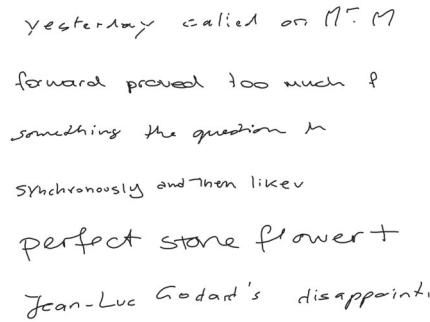 yesterday called on Mr. M
forward proved too much f
something the question h
synchronously and then likev
perfect stone flower t
Jean-Luc Godard's disappoint.